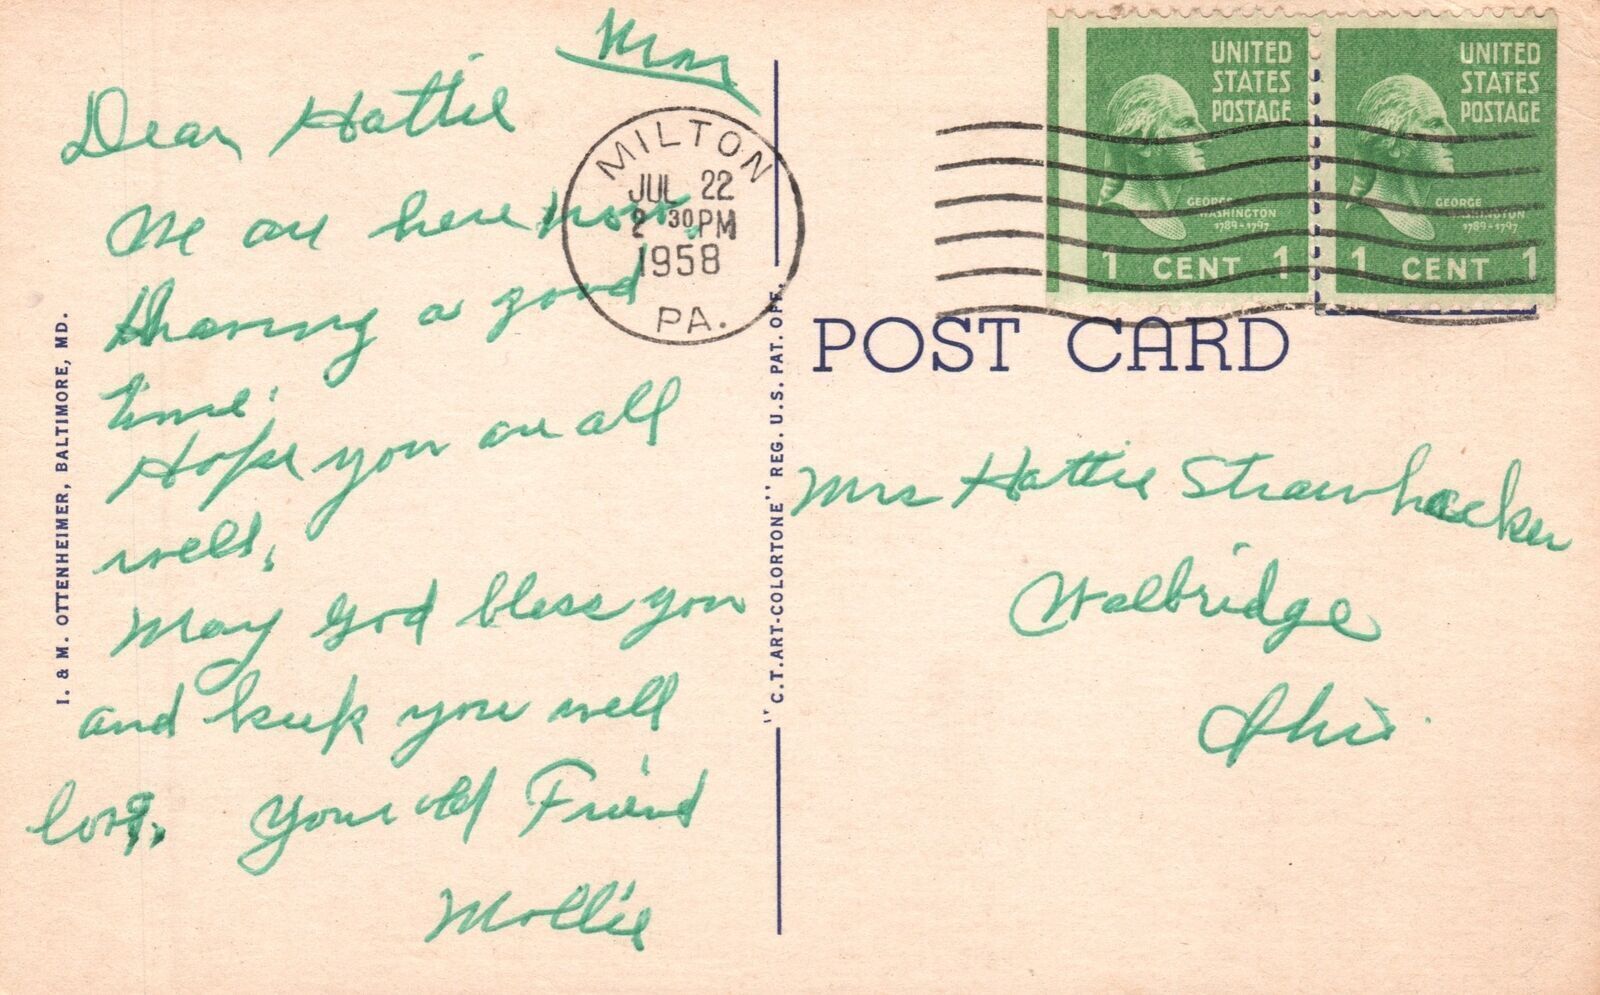 Mon
Dear Hattie
We are here now,
Having a good
time.
Hope you are all
well,
May God bless you
and keep you well
long. Your old Friend
Mollie
MILTON
JUL 22
2 30 PM
1958
PA.
UNITED
STATES
POSTAGE
GEORGE
WASHINGTON
1789-1797
1 CENT 1
UNITED
STATES
POSTAGE
GEORGE
WASHINGTON
1789-1797
1 CENT 1
POST CARD
Mrs Hattie Strawhacker
Walbridge
Ohio.
I. & M. OTTENHEIMER, BALTIMORE, MD.
"C.T. ART-COLORTONE" REG. U.S. PAT. OFF.